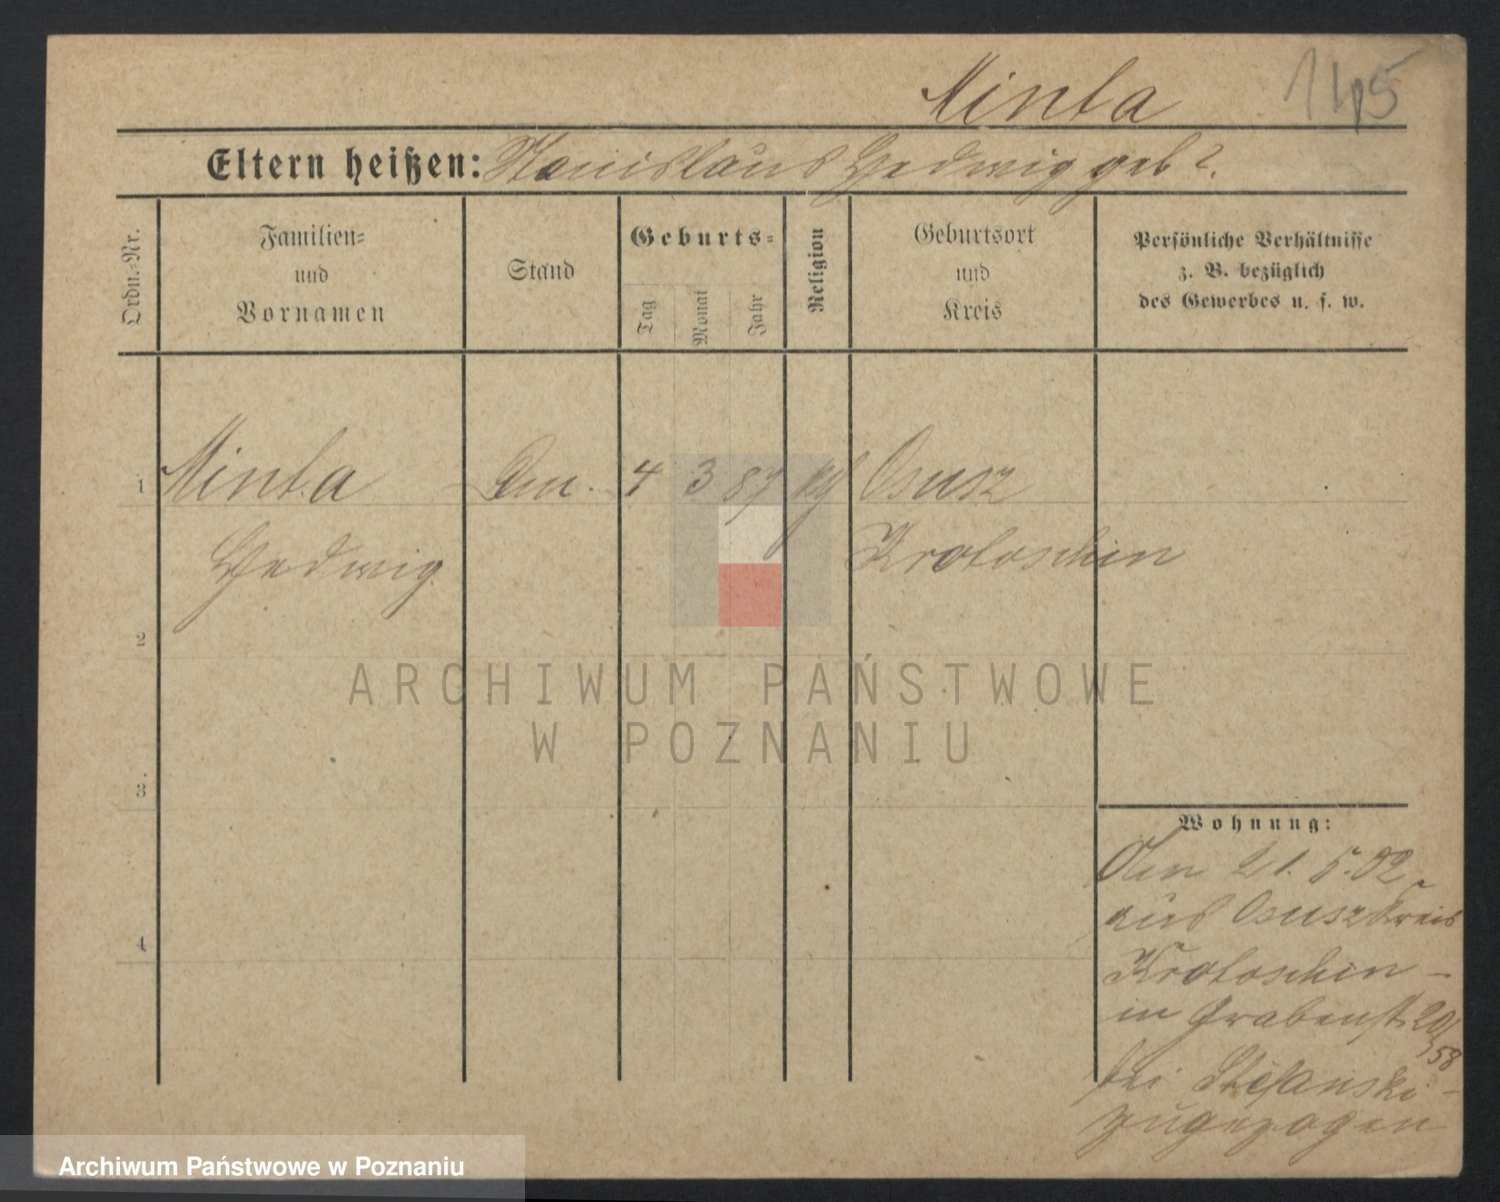 Minta 145
Eltern heißen: Stanislaus Hedwig geb ?.
Ordn.-Nr.
Familien-
und
Vornamen
Stand
Geburts-
Tag
Monat
Jahr
Religion
Geburtsort
und
Kreis
Persönliche Verhältnisse
z. B. bezüglich
des Gewerbes u. s. w.
1 Minta 4 3 87 Osusz
Hedwig Krotoschin
2
ARCHIWUM PAŃSTWOWE
W POZNANIU
3
Wohnung:
Den 21. 5. 02
aus Osusz Kreis
4
Krotoschin -
in Grabenst. 20/
58
bei Stefanski -
zugezogen
Archiwum Państwowe w Poznaniu